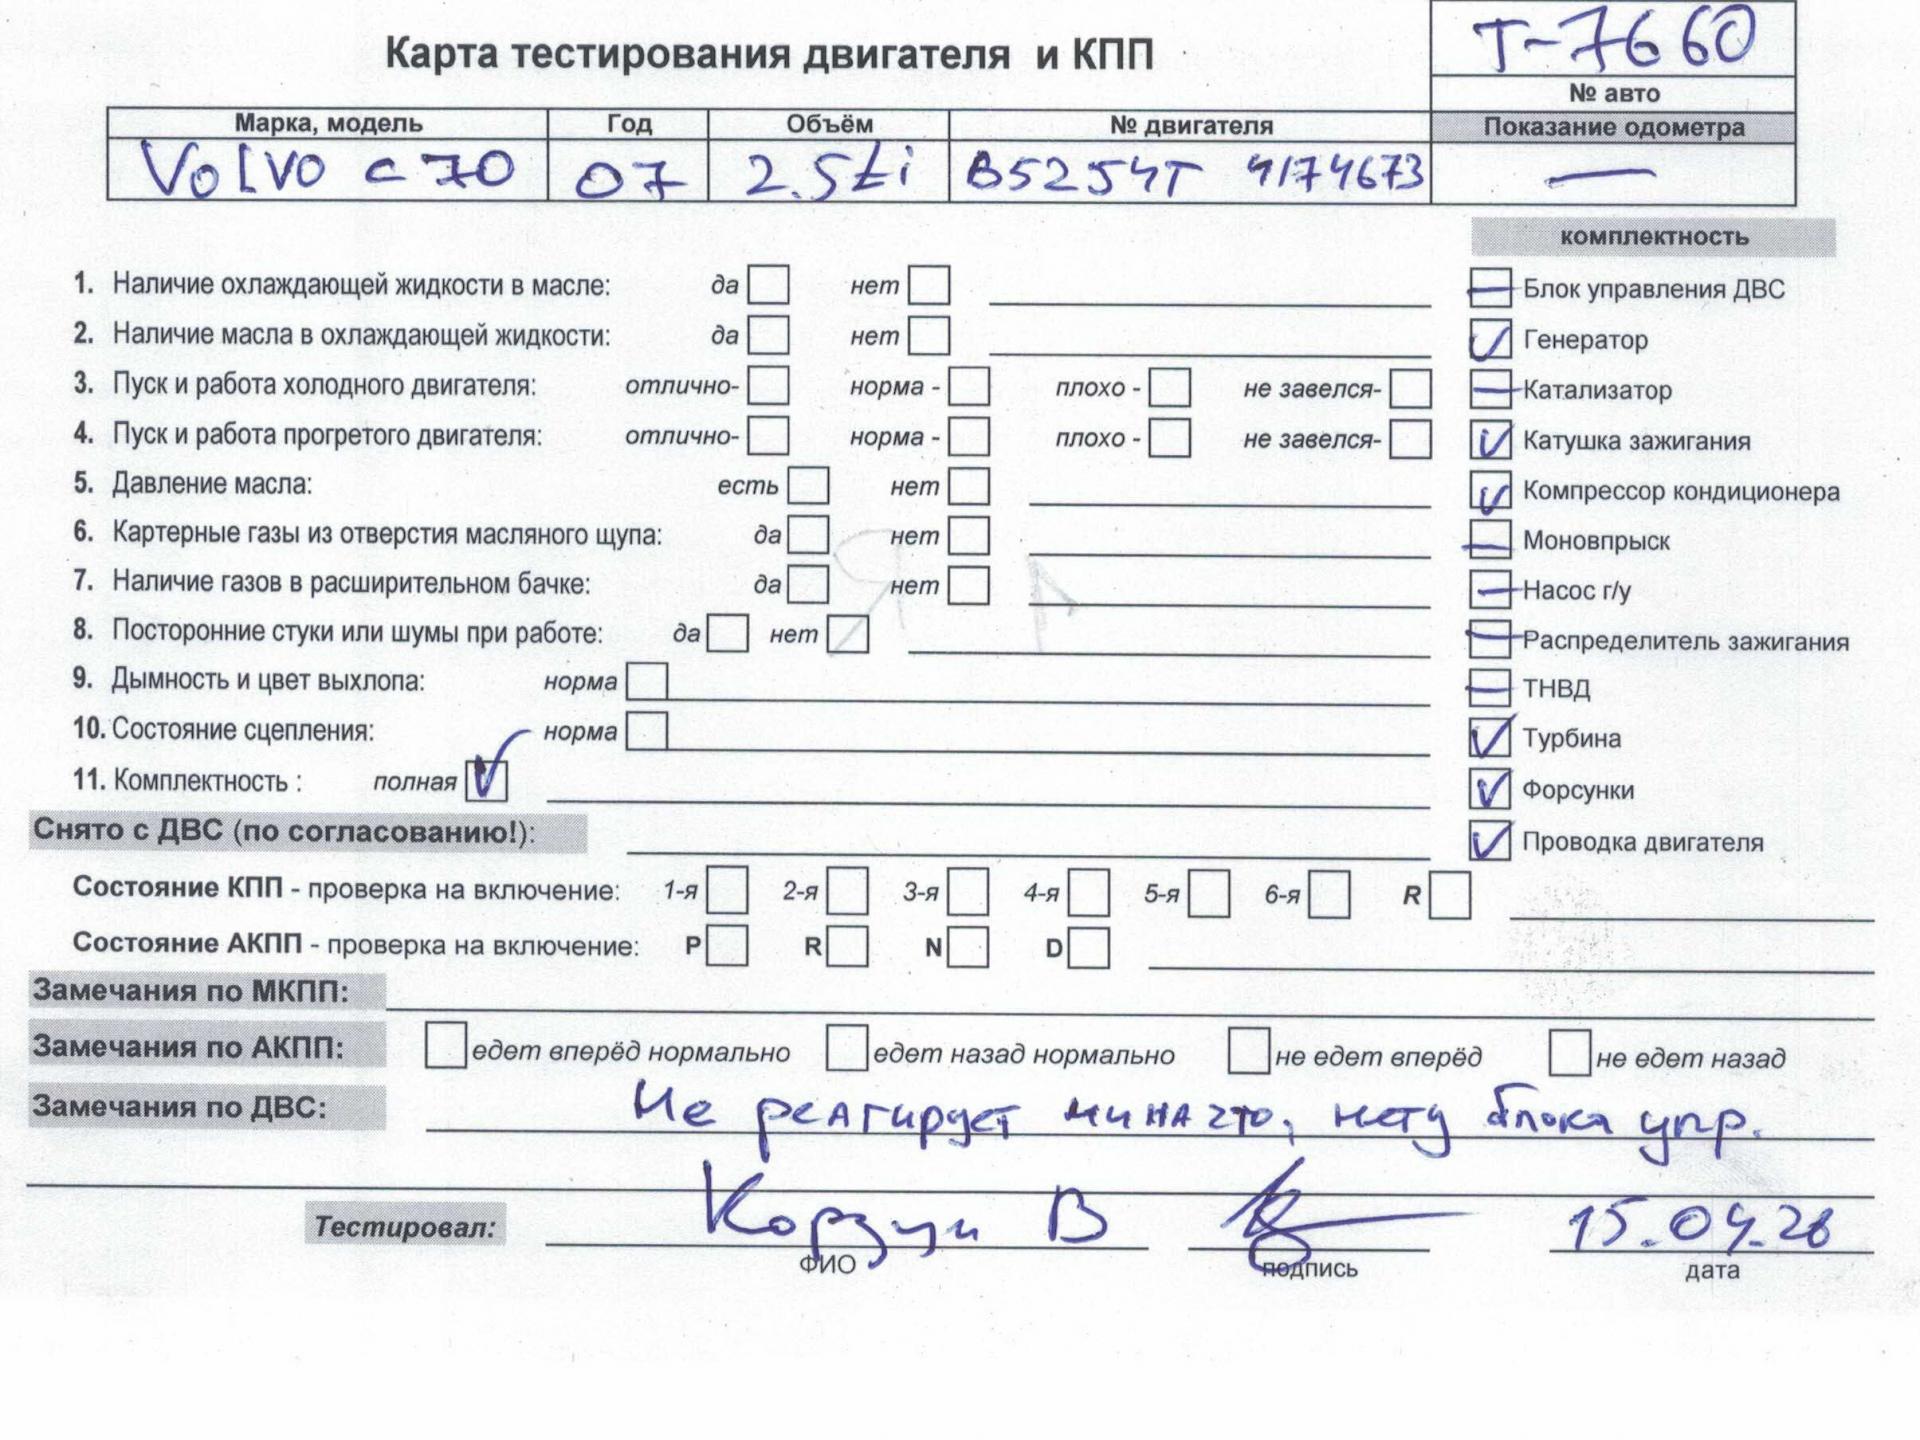 Т-7660
Карта тестирования двигателя и КПП
№ авто
Марка, модель Год Объём № двигателя Показание одометра
Volvo c70 07 2.5ti B5254T 4174673 —
комплектность
1. Наличие охлаждающей жидкости в масле: да нет
Блок управления ДВС
2. Наличие масла в охлаждающей жидкости: да нет
Генератор
3. Пуск и работа холодного двигателя: отлично- норма - плохо - не завелся-
Катализатор
4. Пуск и работа прогретого двигателя: отлично- норма - плохо - не завелся-
Катушка зажигания
5. Давление масла: есть нет
Компрессор кондиционера
6. Картерные газы из отверстия масляного щупа: да нет
Моновпрыск
7. Наличие газов в расширительном бачке: да нет
Насос г/у
8. Посторонние стуки или шумы при работе: да нет
Распределитель зажигания
9. Дымность и цвет выхлопа: норма
ТНВД
10. Состояние сцепления: норма
Турбина
11. Комплектность : полная
Форсунки
Снято с ДВС (по согласованию!):
Проводка двигателя
Состояние КПП - проверка на включение: 1-я 2-я 3-я 4-я 5-я 6-я R
Состояние АКПП - проверка на включение: P R N D
Замечания по МКПП:
Замечания по АКПП: едет вперёд нормально едет назад нормально не едет вперёд не едет назад
Замечания по ДВС: Не реагирует ни на что, нету блока упр.
Тестировал: Корзун В 15.04.26
ФИО подпись дата